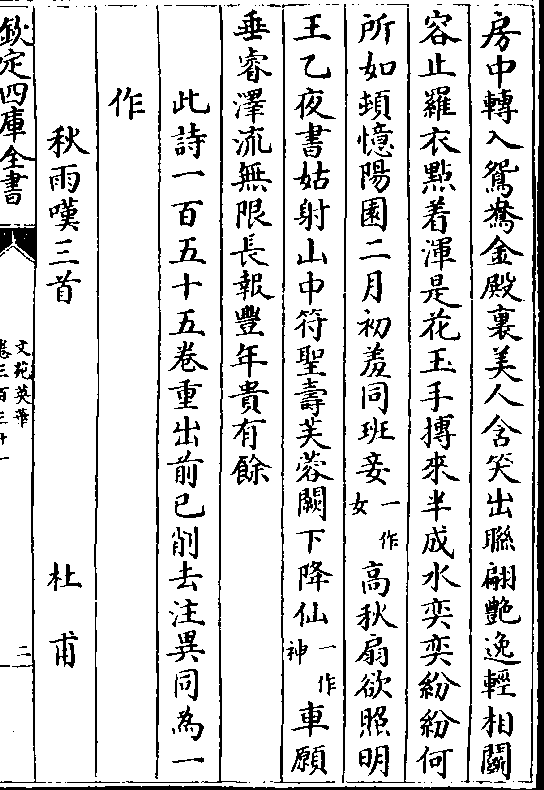 房中轉入鴛鴦金殿裏美人含笑出聯翩艷逸輕相鬬
容止羅衣點着渾是花玉手摶來半成水奕奕紛紛何
所如頓憶陽園二月初羞同班妾一作女高秋扇欲照明
王乙夜書姑射山中符聖壽芙蓉闕下降仙一作神車願
垂睿澤流無限長報豐年貴有餘
此詩一百五十五卷重出前已削去注異同為一
作
秋雨嘆三首 杜甫
欽定四庫全書
文苑英華
卷三百三十一
二